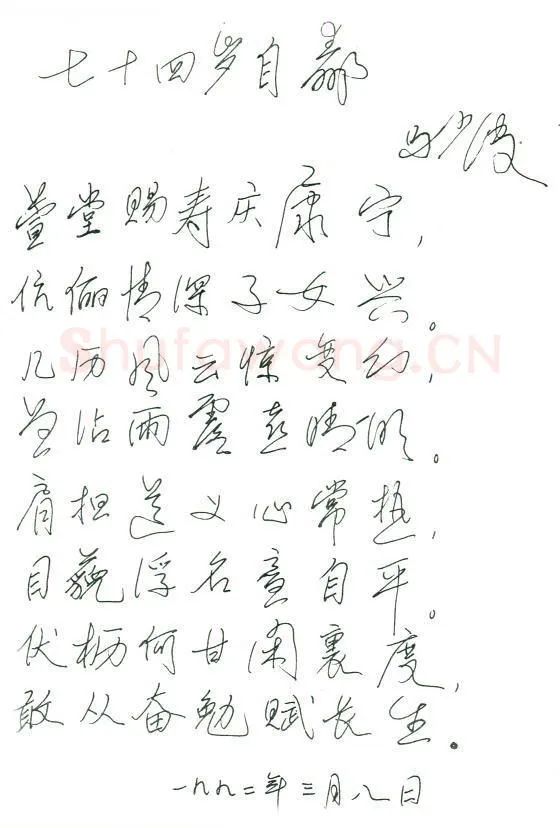 七十四岁自勗
萱堂赐寿庆康宁，
伉俪情深子女兴。
几历风云惊变幻，
沾雨露喜晴明。
肩担道义心常热，
目藐浮名意自平。
伏枥何甘闲里度，
敢从奋勉赋长生。
一九九二年三月八日
Shufawang.CN